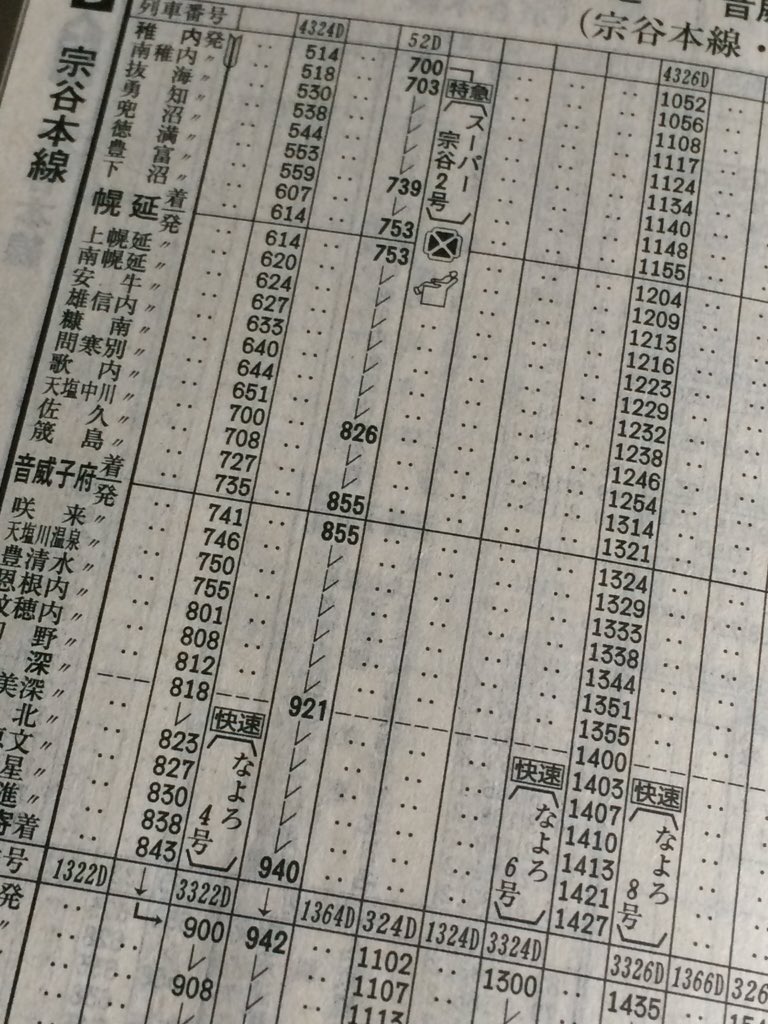 (宗谷本線・
宗谷本線
列車番号 4324D 52D 4326D
稚内発 514 700 1052
南稚内〃 518 703 1056
抜海〃 530 レ 1108
勇知〃 538 レ 1117
兜沼〃 544 レ 1124
徳満〃 553 レ 1134
豊富〃 559 739 1140
下沼〃 607 レ 1148
幌延着 614 753 1155
発 614 753 1204
上幌延〃 620 レ 1209
南幌延〃 624 レ 1213
安牛〃 627 レ 1216
雄信内〃 633 レ 1223
糠南〃 640 レ 1229
問寒別〃 644 レ 1232
歌内〃 651 レ 1238
天塩中川〃 700 826 1246
佐久〃 708 レ 1254
筬島〃 727 レ 1314
音威子府着 735 855 1321
発 741 855 1324
咲来〃 746 レ 1329
天塩川温泉〃 750 レ 1333
豊清水〃 755 レ 1338
恩根内〃 801 レ 1344
紋穂内〃 808 レ 1351
野〃 812 レ 1355
深〃 818 921 1400
美深〃 レ レ 1403
北〃 823 レ 1407
文〃 827 レ 1410
星〃 830 レ 1413
進〃 838 レ 1421
寄着 843 940 1427
特急
スーパー
宗谷2号
快速
なよろ
4号
快速
なよろ
6号
快速
なよろ
8号
号 1322D ↓ 3322D ↓ 1364D 324D 1324D 3324D 3326D 1366D 326
発 900 942 1102 1300 1435
レ レ 1107 レ
908 レ 1113